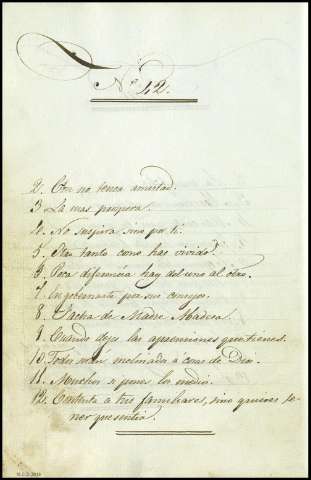 Nº 42.
2. Con no tener amistad.
3 La mas prospera.
4. No suspira sino por ti.
5. Tan tanto como has vivido?
6. Poca diferencia hay del uno al otro.
7. En gobernarte por sus consejos.
8. Hacha de Madre Madera.
9. Cuando dejes las aprenciones que tienes.
10. Todos están inclinados a cosas de Dios.
11. Muchos si pones los medios.
12. Contenta a tus familiares, sino quieres te-
ner que sentir.